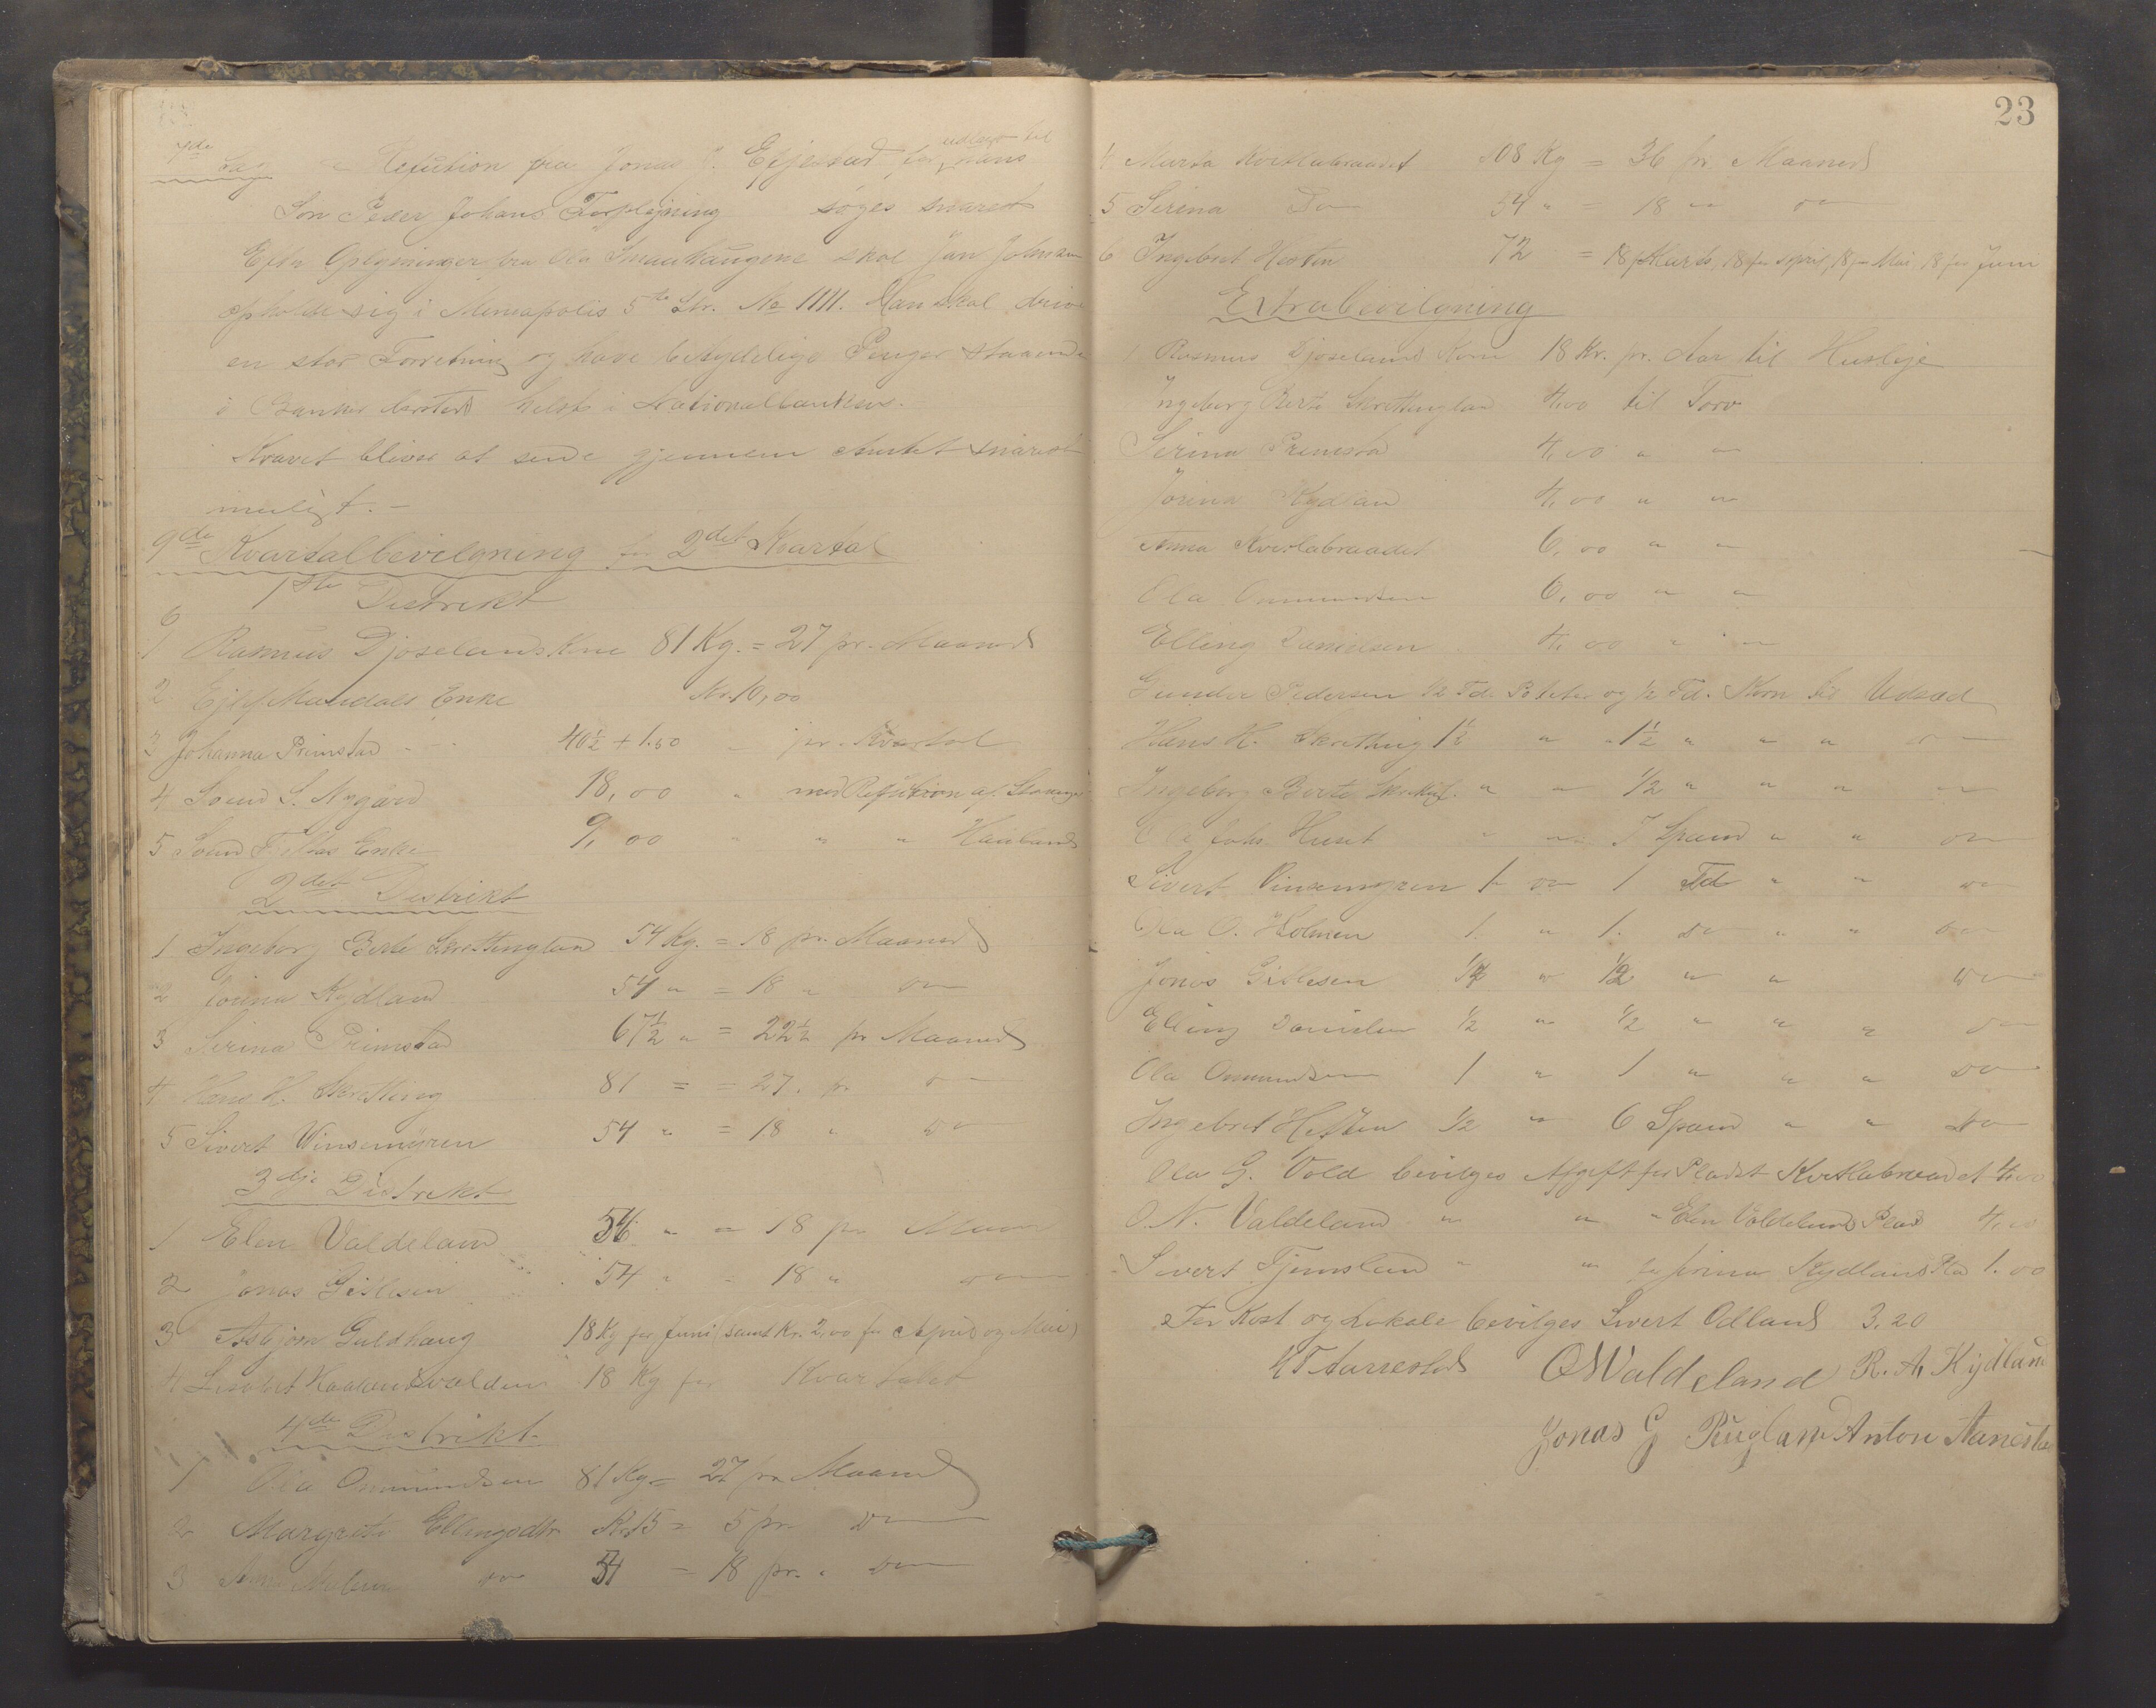 7de Sag Refusion fra Jonas Efjestad for udlagt til hans
Søn Peder Johans Forplejning søges snarest
Efter Oplysninger fra Ola Smauhaugene skal Jan Johnsen
opholde sig i Mineapolis 5te Str. No 1111. Han skal drive
en stor Forretning og have betydelige Penger staaende
i Banker helst i Nationalbanken.
Kravet bliver at sende gjennem Amtet snarest
muligt. -
9de Kvartalbevilgning for 2det Kvartal
1ste Distrikt
6
1 Rasmus Djøseland Kone 81 Kg. = 27 pr. Maaned
2 Ejelf Maudals Enke Kr. 10,00
3 Johanna Primstad 40½ + 1.50 pr. Kvartal
4 Svend S. Nygard 18,00 " med Refusion af Stavanger
5 Svend Fjeltas Enke 9,00 " " " Haaland
2det Distrikt
1 Ingeborg Berte Skrettingland 54 Kg. = 18 pr. Maaned
2 Jorina Kydland 54 " = 18 " do
3 Serina Primstad 67½ " = 22½ pr Maaned
4 Hans H. Skretting 81 = = 27. pr do
5 Sivert Vinsemyren 54 " = 18 " do
3dje Distrikt
1 Elen Valdeland 54 " = 18 pr Maan
2 Jonas Gitlesen 54 " = 18 " do
3 Asbjørn Guldhaug 18 Kg for Juni (samt Kr. 2,00 for April og Mai)
4 Lisabet Haalandsvalden 18 Kg for Kvartalet
4de Distrikt
1 Ola Ommundsen 81 Kg = 27 pr Maaned
2 Margrete Ellingsdtr. Kr 15 = 5 pr. do
3 do 54 = 18 pr. " do
23
4 Marta Kvitlabraadet 108 Kg = 36 pr. Maaned
5 Serina Do 54 " = 18 " do
6 Ingebret Heften 72 = 18 f Marts, 18 for April, 18 for Mai 18 for Juni
Extrabevilgning
1 Rasmus Djøseland Kone 18 Kr. pr. Aar til Husleje
Ingeborg Berte Skrettingland 4,00 til Torv
Serina Primstad 4,00 " "
Jorina Kydland 4,00 " "
Anna Kvitlabraadet 6,00 " "
Ola Ommundsen 6,00 " "
Elling Danielsen 4,00 " "
Gunder Pedersen ½ Td. Poteter og ½ Td. Korn til Udsæd
Hans H. Skretting 1½ " " 1½ " " " do
Ingeborg Berte Skretting " " ½ " " " do
Ola Johs. Huset " " 7 Spand " " do
Sivert Vinsemyren 1 do 1 Td " " do
Ola O. Holmen 1. " 1. do " " do
Jonas Gitlesen ¼ " ½ " " do
Elling Danielsen ½ " ½ " " " do
Ola Ommundsen 1 " 1 " " " do
Ingebret Heften ½ " 6 Spand " " do
Ola G. Vold bevilges Afgift for Pladst Kvitlabraadet 4,00
O. N. Valdeland " " " Elen Valdelands Plads 4,00
Sivert Tjemsland " " for Jorina Kydlands Pla 1.00
For Kost og Lokale bevilges Sivert Odland 3,20
Aarrestad O Waldeland R. A. Kydland
Jonas G Rugland Anton Aarrestad